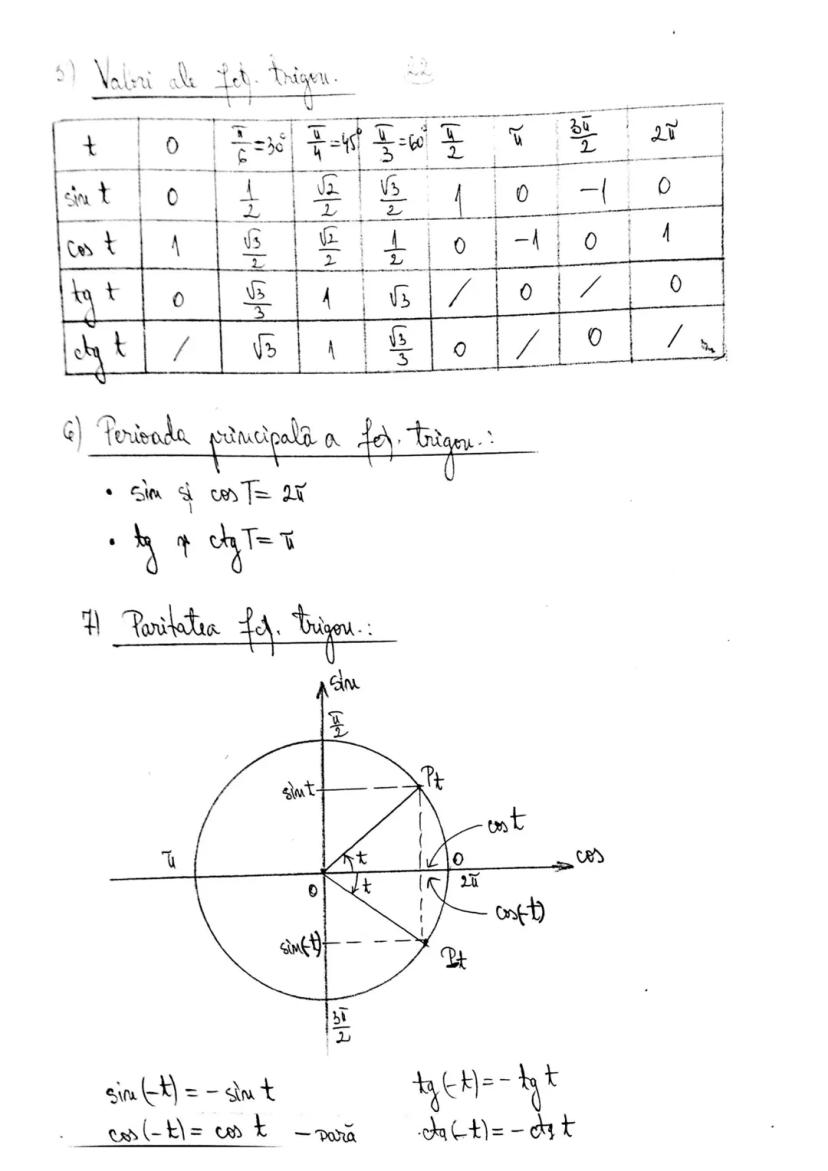 5) Valori ale fcț. trigon. 22
t 0 π/6=30° π/4=45° π/3=60° π/2 π 3π/2 2π
sin t 0 1/2 √2/2 √3/2 1 0 -1 0
cos t 1 √3/2 √2/2 1/2 0 -1 0 1
tg t 0 √3/3 1 √3 / 0 / 0
ctg t / √3 1 √3/3 0 / 0 /
6) Perioada principală a fcț. trigon.:
• sin și cos T= 2π
• tg și ctg T= π
7) Paritatea fcț. trigon.:
sin
π/2
sin t Pt
cos t
π t 0 cos
0 t 2π
cos(-t)
sin(-t) P-t
3π/2
sin(-t) = - sin t tg(-t) = - tg t
cos(-t) = cos t - pară ctg(-t) = - ctg t